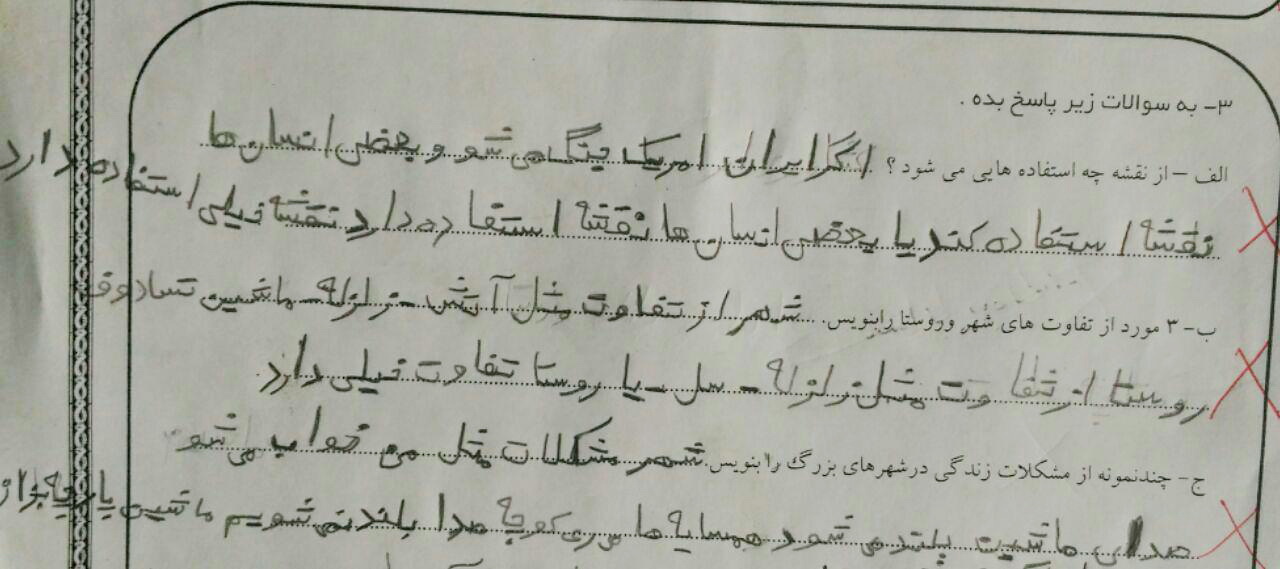 ۳- به سوالات زیر پاسخ بده .
الف – از نقشه چه استفاده هایی می شود ؟ اگر ایران امریک جنگ می شو و بعضی انسان ها
نقشه استفاده کند یا بعضی انسان ها نقشه استفاده دارد نقشه خیلی استفاده دارد
ب- ۳ مورد از تفاوت های شهر وروستا رابنویس. شهر از تفاوت مثل آتش - زلزله - ماشین تسادوف
روستا از تفاوت مثل زلزله - سل - یا روستا تفاوت خیلی دارد.
ج- چندنمونه از مشکلات زندگی درشهرهای بزرگ را بنویس. شهر مشکلات مثل می خواب می شو
صدای ماشین بلند می شود همسایه ها کوچه صدا بلند نمی شویم ماشین